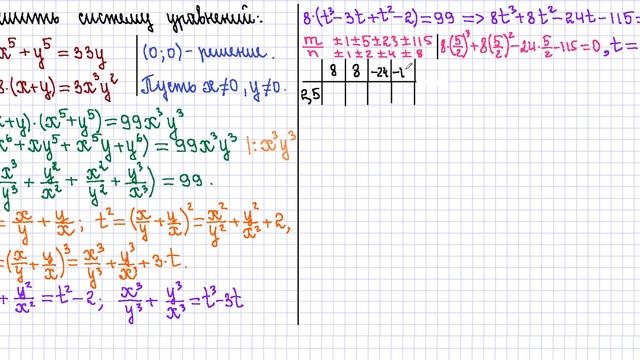 шить систему уравнений:
x⁵ + y⁵ = 33y
8·(x+y) = 3x³y²
(0;0) - решение.
Пусть x≠0, y≠0.
+y)·(x⁵+y⁵) = 99x³y³
x⁶ + xy⁵ + x⁵y + y⁶) = 99x³y³ |:x³y³
x³/y³ + y²/x² + x²/y² + y³/x³) = 99.
= x/y + y/x; t² = (x/y + y/x)² = x²/y² + y²/x² + 2,
= (x/y + y/x)³ = x³/y³ + y³/x³ + 3·t.
+ y²/x² = t² - 2; x³/y³ + y³/x³ = t³ - 3t
8·(t³ - 3t + t² - 2) = 99 => 8t³ + 8t² - 24t - 115 =
m/n ±1±5±23±115 / ±1±2±4±8 | 8·(5/2)³ + 8(5/2)² - 24·5/2 - 115 = 0, t =
8 8 -24 -1
2,5